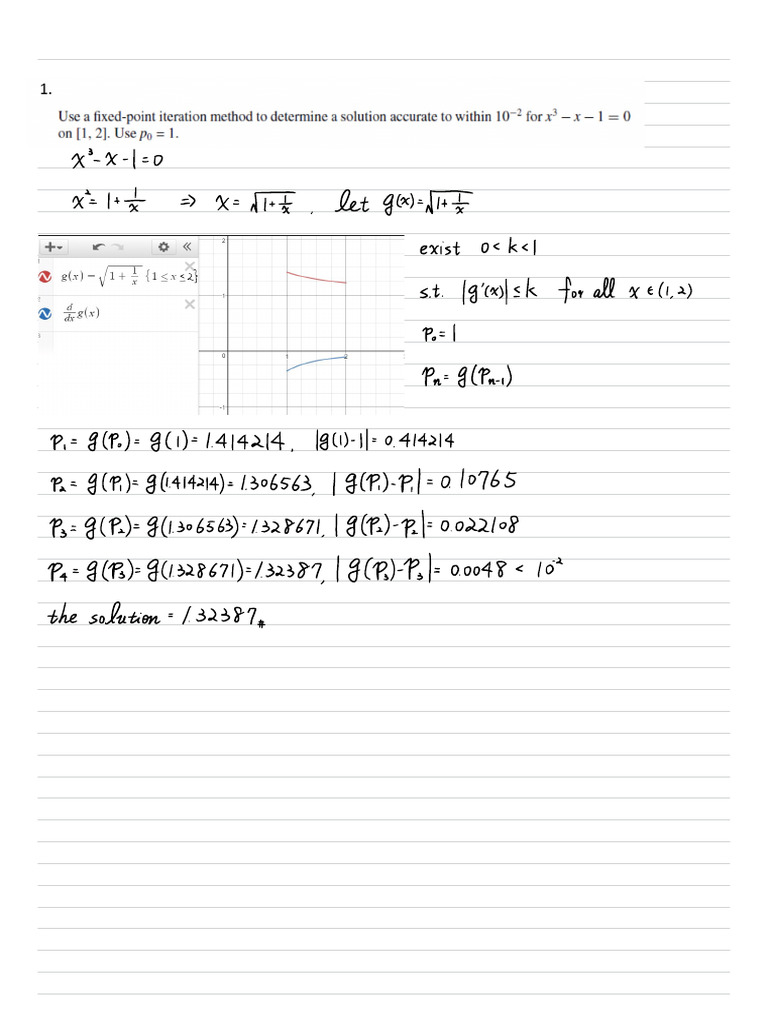 1.
Use a fixed-point iteration method to determine a solution accurate to within 10⁻² for x³ − x − 1 = 0
on [1, 2]. Use p₀ = 1.
x³ - x - 1 = 0
x² = 1 + 1/x ⇒ x = √(1 + 1/x) , let g(x) = √(1 + 1/x)
g(x) = √(1 + 1/x) {1 ≤ x ≤ 2}
d/dx g(x)
2
1
0 1 2
-1
exist 0 < k < 1
s.t. |g'(x)| ≤ k for all x ∈ (1, 2)
P₀ = 1
Pₙ = g(Pₙ₋₁)
P₁ = g(P₀) = g(1) = 1.414214, |g(1) - 1| = 0.414214
P₂ = g(P₁) = g(1.414214) = 1.306563, |g(P₁) - P₁| = 0.10765
P₃ = g(P₂) = g(1.306563) = 1.328671, |g(P₂) - P₂| = 0.022108
P₄ = g(P₃) = g(1.328671) = 1.32387, |g(P₃) - P₃| = 0.0048 < 10⁻²
the solution = 1.32387 #